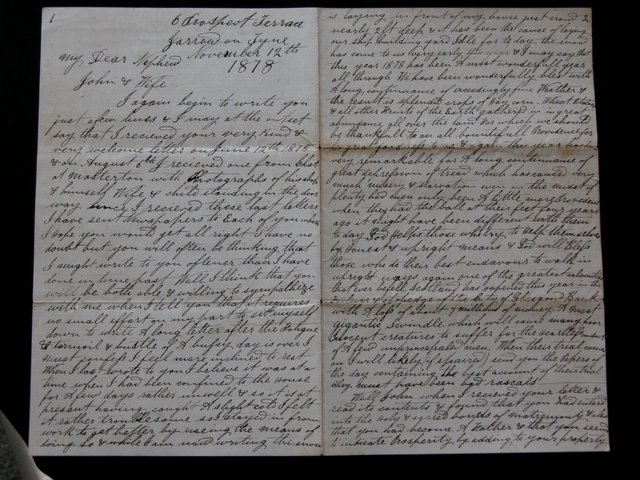 1
6 Prospect Terrace
Jarrow on Tyne
November 12th
1878
My Dear Nephew
John & Wife
I again begin to write you
just a few lines & I may at the outset
say that I received your very kind &
very welcome letter on June 12th 1878
& on August 6th I received one from
at Masterton with Photographs of his shop
& himself Wife & child standing in the door
way. Since I received those last letters
I have sent Newspapers to Each of you which
I hope you would get all right I have no
doubt but you will often be thinking that
I might write to you oftener than I have
done in time past Well I think that you
will be both able & willing to sympathize
with me when I tell you that it requires
no small effort on my part to set myself
down to write a long letter after the Fatigue
& turmoil & bustle of a bussy day is over I
must confess I feel more inclined to rest
When I last wrote to you I believe it was at a
time when I had been confined to the House
for a few days rather unwell & so it is at
present having caught a slight cold & felt
it rather troublesome so I stayed in from
work to get better by useing the means of
doing so & while I am now writing the snow
is laying in front of my house just now 2
nearly 2ft deep & it has been the cause of laying
our ship building yard idle for to day. the snow
has come to us very early this year & I may say that
this year 1878 has been a most wonderful year
all through. We have been wonderfully blest with
a long continuance of exceeding fine Weather &
the result is splendid crops of Hay, corn, Wheat
& all other Fruits of the Earth gathered in in great
abundance all over the land for which we should
be thankfull to an all bountifull Providence for
his goodness to us & again this year has been
very remarkable for a long continuance of
great depression of trade which has caused very
much misery & starvation even in the midst of
plenty had men only been a little more provident
when they had the chance a few short years
ago it might have been different with them
to day. God Helps those who try to Help themselves
by Honest & upright means & God will Bless
those who do their best endeavours to walk in
upright ways again one of the greatest calamitys
that ever befell Scotland has hapened this year in the
of the City of Glasgow Bank
with a Loss of about 7 millions of money. A most
gigantic Swindle, which will cause many poor
inocent creatures to suffer for the Heartlessness
of a few unprincipaled men. When their trial comes
on I will likely (if spared) send you the papers on
the day containing the best account of their trial
they must have been bad rascals
Well John when I received your letter &
read its contents & found that you had entered
into the Holy & sacred bonds of matremony & also
that you had become a Father & that you seemed
to indicate Prosperity by adding to your property